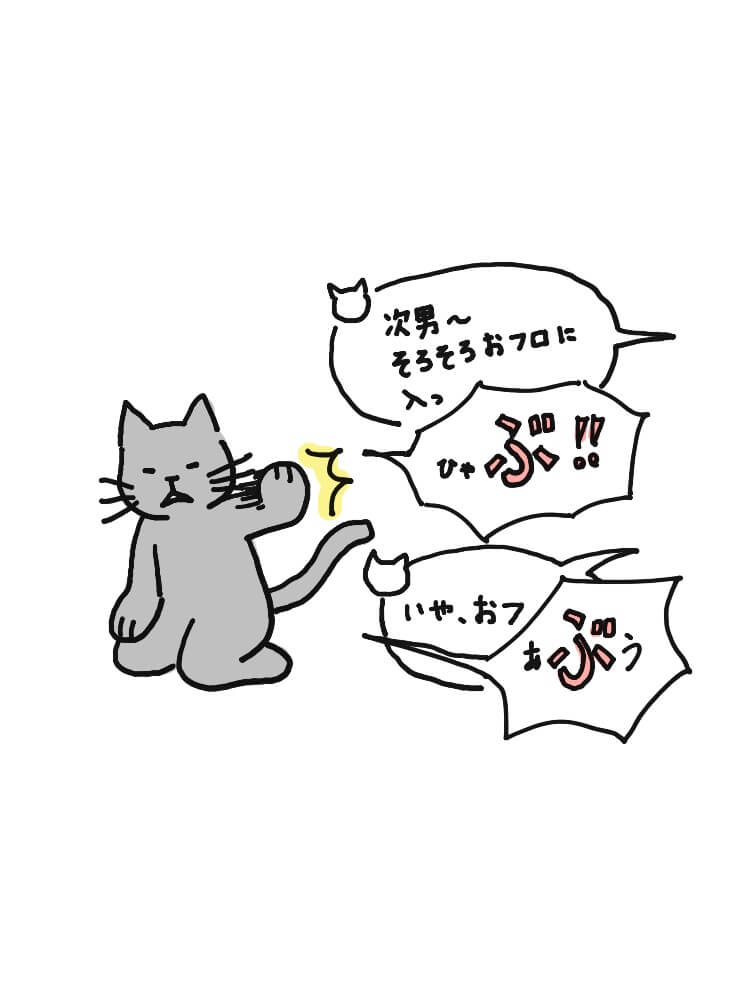 次男〜
そろそろおフロに
入っ
ひゃぶ!!
いや、おフ
あぶう